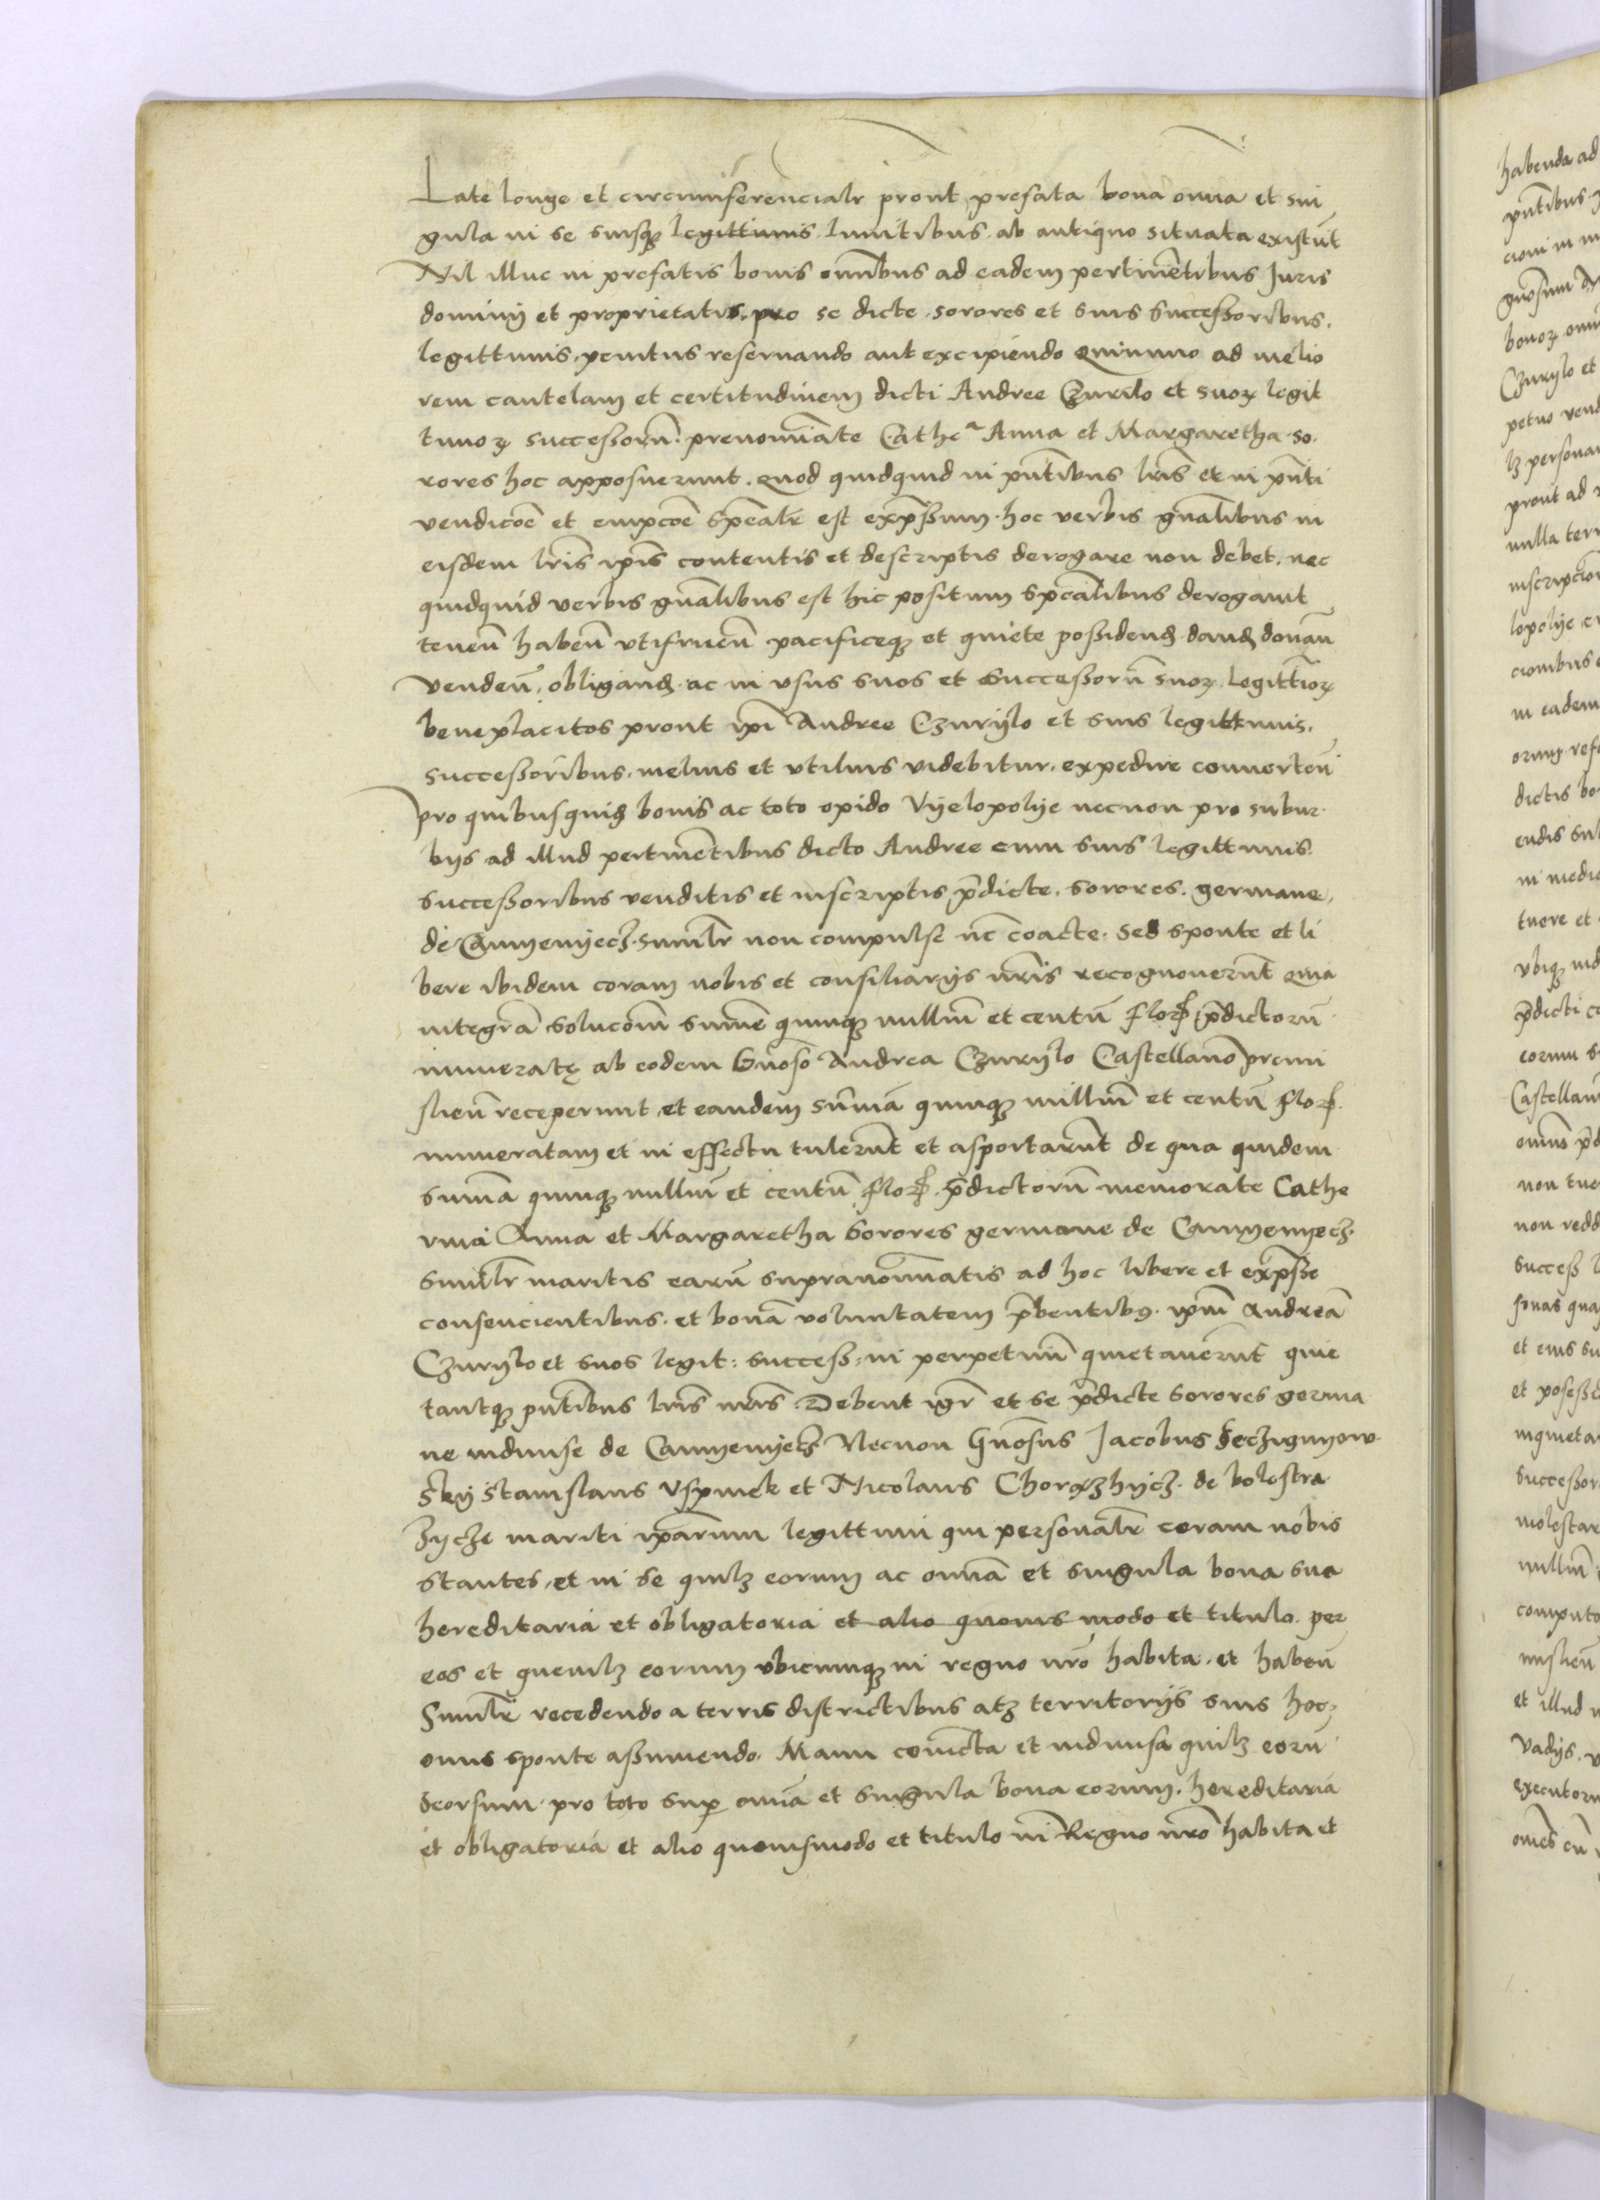 Late longe et circumferencialr̄ prout prefata bona om̄ia et sin
gula in se suisqꝫ legittimis limitibus ab antiquo situata existūt
Nil illuc in prefatis bonis om̄ibus ad eadem pertinētibus Juris
dominij et proprietatis pro se dicte sorores et suis successoribus
legittimis penitus reservando aut excipiendo Quinimo ad melio
rem cautelam et certitudinem dicti Andree Czurilo et suoꝝ legit
timoꝝ successorū prenominate Catheᵃ Anna et Margaretha so
rores hoc apposuerunt quod quidquid in pn̄tibus lrīs et in pn̄ti
vendicōe et empcōe spēalr̄ est exp̄ssum hoc verbis gn̄alibus in
eisdem lrīs ip̄is contentis et descriptis derogare non debet nec
quidquid verbis gn̄alibus est hic positum spēcalibus derogavit
tenen̄ haben̄ utifruen̄ pacificeqꝫ et quiete possidenꝺ danꝺ donan̄
venden̄ obliganꝺ ac in usus suos et successorū suoꝝ legittīoꝝ
beneplacitos prout ip̄i Andree Czurijlo et suis legittimis
successoribus melius et utilius videbitur expedire converten̄
pro quibusquiꝺ bonis ac toto opido Vijelopolije necnon pro subur
bijs ad illud pertinētibus dicto Andree cum suis legittimis
successoribus venditis et inscriptis p̄dicte sorores germane
de Camyenyecz similr̄ non compulse nc̄ coacte sed sponte et li
bere ibidem coram nobis et consiliarijs nr̄is recognoverūt quia
integrā solucōm sum̄e quinqꝫ milliū et centū flor p̄dictorū
numeratę ab eodem Gnoso Andrea Czurijlo Castellano premi
slien̄ receperunt et eandem sum̄ā quinqꝫ milliū et centū flor
numeratam et in effectu tulerūt et asportarūt de qua quidem
sum̄a quinqꝫ milliū et centū flor p̄dictorū memorate Cathe
rina Anna et Margaretha Sorores germane de Camyenyecz
similr̄ maritis earū supranoīatis ad hoc libere et exp̄sse
consencientibus et bonā voluntatem p̄bentibꝰ ip̄m Andreā
Czurylo et suos legit: success: in perpetuū quietaverūt quie
tantqꝫ pn̄tibus lrīs nr̄is Debent igr̄ et se p̄dicte Sorores germa
ne indivise de Camyenyecz Necnon Gnōsus Jacobus Sczignyow
sky Stanislaus Uspinek et Nicolaus Chorązhycz de bolestra
zycze mariti ip̄arum legittimi qui personalr̄ coram nobis
stantes et in se quilꝫ eorum ac om̄ia et singula bona sua
hereditaria et obligatoria et alio quovis modo et titulo per
eos et quemlꝫ eorum ubicumqꝫ in regno nrō habita et haben̄
Similr̄ recedendo a terris districtibus atqꝫ territorijs suis hoc
onus sponte assumendo Manu coniūcta et indivisa quilꝫ eorū
seorsum pro toto sup om̄ia et singula bona eorum hereditaria
et obligatoria et alio quovismodo et titulo in Regno nrō habita et
habenda ad
pn̄tibus
gnōsum
bonoꝝ
Czurylo et
petuo vend
lꝫ personar
prout ad
nulla terr
inscripcion
lopolije
cionibus
in eadem
orum
dictis bo
endis
in medi
tuere et
ubiqꝫ
p̄dicti
eorum
Castellan
non tue
non redd
success
et eius
et
inquieta
successor
molestar
milliū
computo
et illud
vadijs
executor